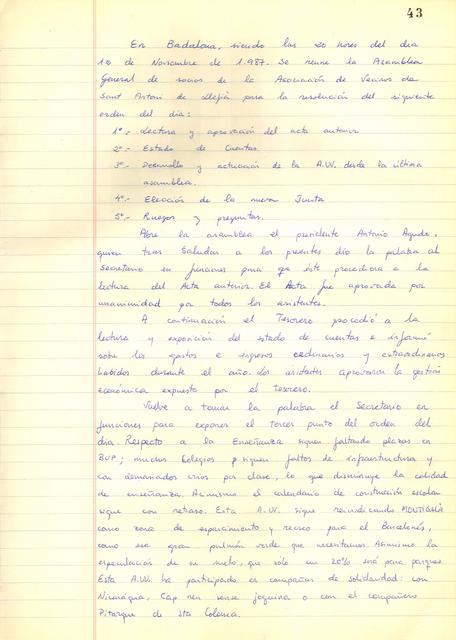 43
En Badalona, siendo las 20 hores del dia
12 de Noviembre de 1.987. Se reune la Asamblea
General de socios de la Asociación de Vecinos de
Sant Antoni de Llefià para la resolución del siguiente
orden del día:
1º.- Lectura y aprovación del acta anterior
2º.- Estado de Cuentas.
3º.- Desarrollo y actuación de la A.VV. desde la última
asamblea.
4º.- Elección de la nueva Junta
5º.- Ruegos y preguntas.
Abre la asamblea el presidente Antonio Agudo,
quien tras Saludar a los presentes dio la palabra al
Secretario en funciones para que éste procediera a la
lectura del Acta anterior. El Acta fue aprovada por
unanimidad por todos los asistentes.
A continuación el Tesorero procedió a la
lectura y exposición del estado de cuentas e informó
sobre los gastos e ingresos ordinarios y extraordinarios
habidos durante el año. Los asistentes aprovaron la gestión
económica expuesta por el tesorero.
Vuelve a tomar la palabra el Secretario en
funciones para exponer el tercer punto del orden del
día. Respecto a la Enseñanza siguen faltando plazas en
BUP; muchos Colegios siguen faltos de infraestructura y
con demasiados crios por clase, lo que disminuye la calidad
de enseñanza. Asimismo el calendario de construcción escolar
sigue con retraso. Esta A.VV. sigue reivindicando MONTIGALÀ
como zona de esparcimiento y recreo para el Barcelonés,
como ese gran pulmón verde que necesitamos. Asimismo la
especulación de su suelo, que sólo un 20% será para parques.
Esta A.VV. ha participado en campañas de solidaridad: con
Nicaragua, Cap nen sense joguina o con el compañero
Pitarque de Sta Coloma.